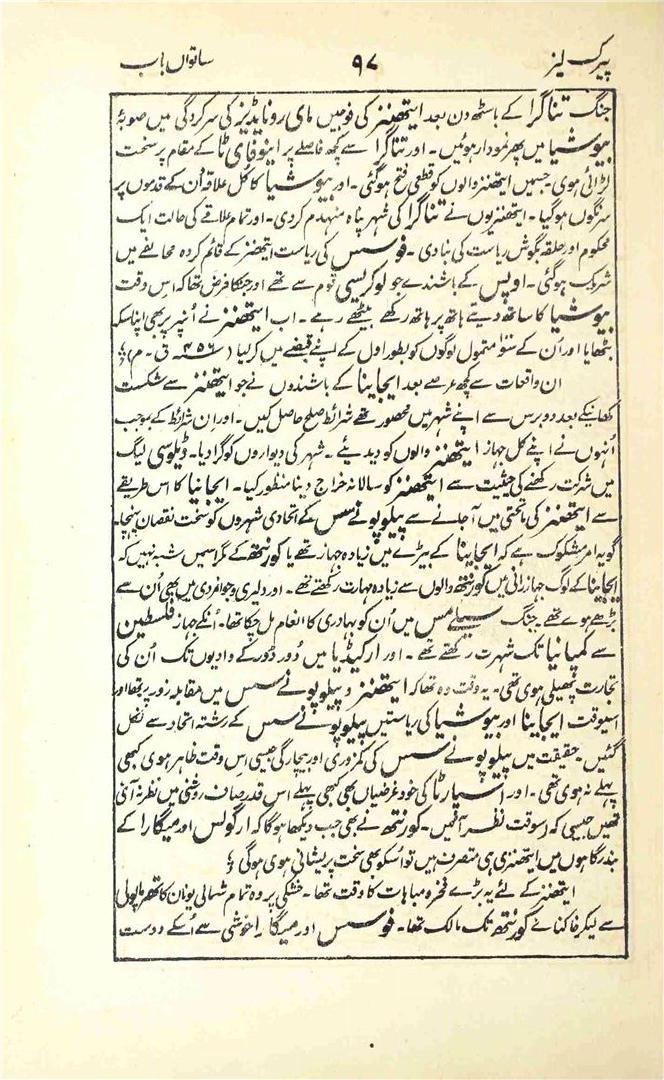 پیرک لیز ۹۷ ساتواں باب
جنگ تناگرا کے باسٹھ دن بعد ایتھنز کی فوجیں مای رونایڈیز کی سرکردگی میں صوبۂ
بیوشیا میں پھر نمودار ہوئیں ۔ اور تناگرا سے کچھ فاصلے پر اینوفای ٹا کے مقام پر سخت
لڑائی ہوی ۔ جسمیں ایتھنز والوں کو قطعی فتح ہوگئی ۔ اور بیوشیا کا کل علاقہ اُن کے قدموں پر
سرنگوں ہوگیا ۔ ایتھنزیوں نے تناگرا کی شہر پناہ منہدم کردی ۔ اور تمام علاقے کی حالت ایک
محکوم اور حلقہ بگوش ریاست کی بنادی ۔ فوسس کی ریاست ایتھنز کے قائم کردہ محالفے میں
شریک ہوگئی ۔ اوپس کے باشندے جو لوکریسی قوم سے تھے اور جنکا فرض تھا کہ اس وقت
بیوشیا کا ساتھ دیتے ہاتھ پر ہاتھ رکھے بیٹھے رہے ۔ اب ایتھنز نے اُنپر بھی اپنا سکہ
بٹھایا اور اُن کے سو متمول لوگوں کو بطور اول کے اپنے قبضے میں کرلیا ( ۴۵۶ ق ۔ م )
ان واقعات سے کچھ عرصے بعد ایجاینا کے باشندوں نے جو ایتھنز سے شکست
کھانیکے بعد دو برس سے اپنے شہر میں محصور تھے شرائط صلح حاصل کیں ۔ اور اِن شرائط کے بموجب
اُنہوں نے اپنے کل جہاز ایتھنز والوں کو دیدیئے ۔ شہر کی دیواروں کو گرا دیا ۔ ڈیلوسی لیگ
میں شرکت رکھنے کی حیثیت سے ایتھنز کو سالانہ خراج دینا منظور کیا ۔ ایجاینا کا اس طریقے
سے ایتھنز کی ماتحتی میں آجانے سے پیلوپونے سس کے اتحادی شہروں کو سخت نقصان پہنچا ۔
گو یہ امر مشکوک ہے کہ ایجاینا کے بیڑے میں زیادہ جہاز تھے یا کورنتھ کے مگر اسمیں شبہ نہیں کہ
ایجاینا کے لوگ جہاز رانی میں کورنتھ والوں سے زیادہ مہارت رکھتے تھے ۔ اور دلیری و جوانمردی میں بھی اُن سے
بڑھے ہوے تھے ۔ جنگ سیلے مس میں اُن کو بہادری کا انعام مل چکا تھا ۔ اُنکے جہاز فلسطین
سے کمپانیا تک شہرت رکھتے تھے ۔ اور ارکیڈیا میں دور دور کے وادیوں تک اُن کی
تجارت پھیلی ہوی تھی ۔ یہ وقت وہ تھا کہ ایتھنز و پیلوپونے سس میں مقابلہ زور پر تھا اور
اسیوقت ایجاینا اور بیوشیا کی ریاستیں پیلوپونے سس کے رشتہ اتحاد سے نکل
گئیں ۔ حقیقت میں پیلوپونے سس کی کمزوری اور بیچارگی جیسی اس وقت ظاہر ہوی کبھی
پہلے نہ ہوی تھی ۔ اور اسپارٹا کی خود غرضیاں بھی کبھی پہلے اس قدر صاف روشنی میں نظر نہ آئی
تھیں جیسی کہ اسوقت نظر آئیں ۔ کورنتھ نے بھی جب دیکھا ہوگا کہ ارگوس اور میگارا کے
بندرگاہوں میں ایتھنزی ہی متصرف ہیں تو اسکو بھی سخت پریشانی ہوی ہوگی
ایتھنز کے لئے یہ بڑے فخر و مباہات کا وقت تھا ۔ خشکی پر وہ تمام شمالی یونان کا تھرماپولی
سے لیکر خاکنائے کورنتھ تک مالک تھا ۔ فوسس اور میگارا خوشی سے اُسکے دوست